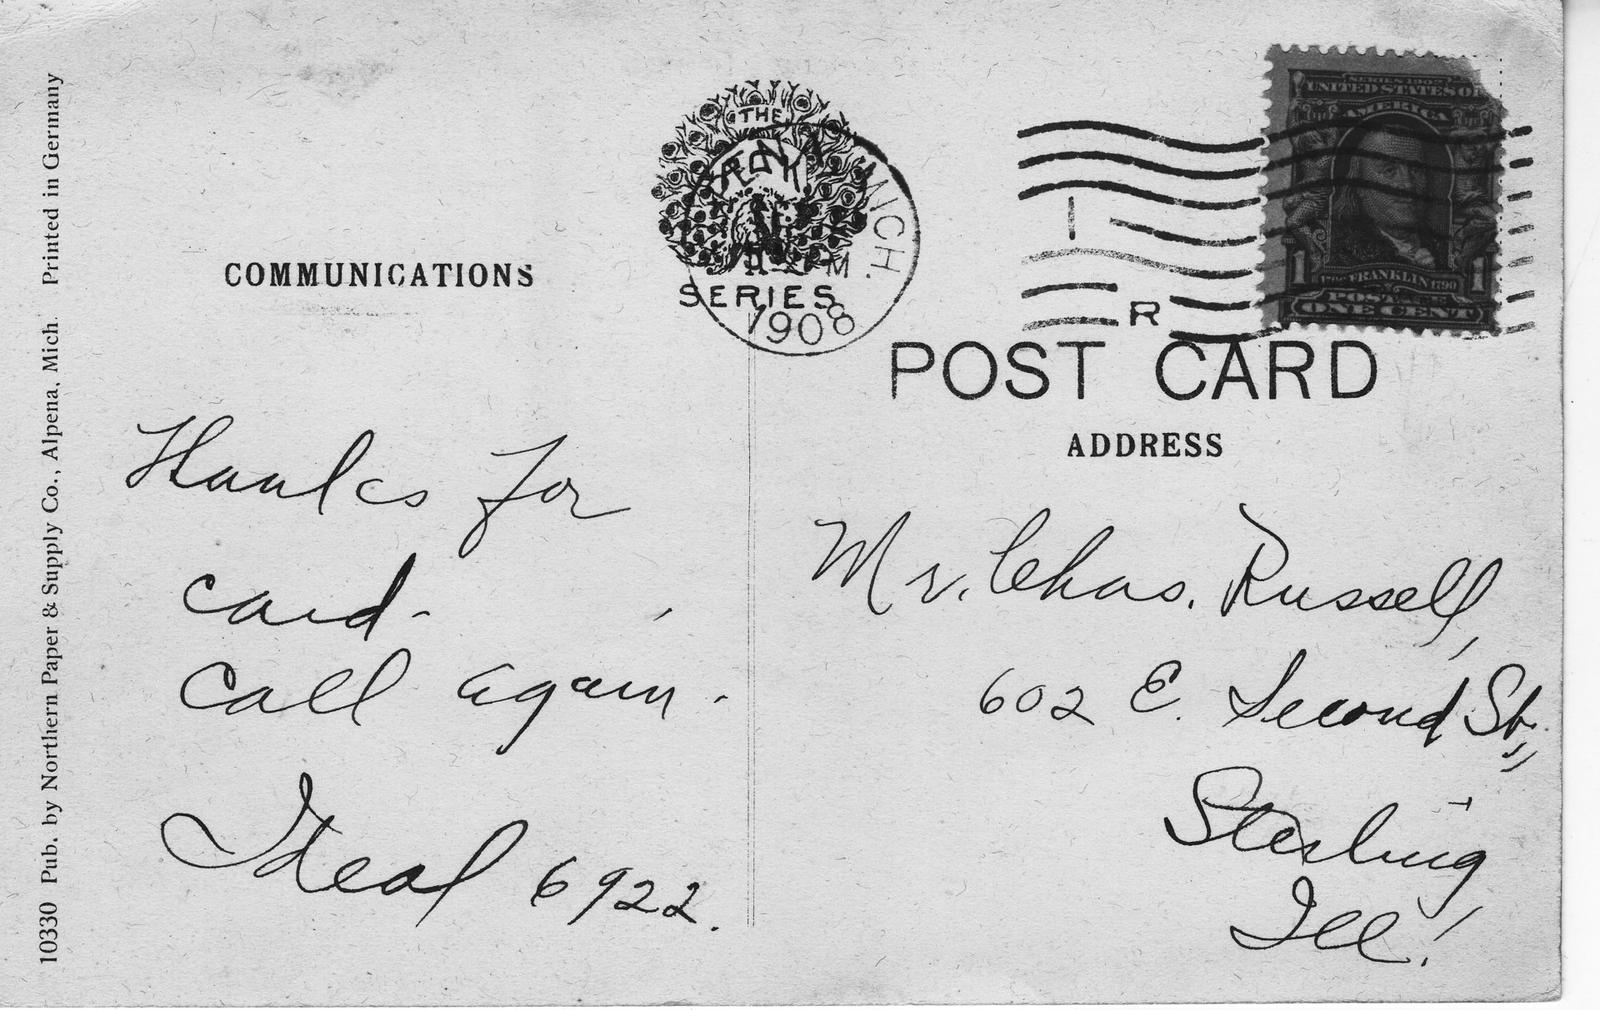 10330 Pub. by Northern Paper & Supply Co., Alpena, Mich. Printed in Germany
COMMUNICATIONS
Thanks for
card.
Call again.
Ideal 6922.
THE
SERIES
MICH.
M.
1908
1
R
SERIES 1902
UNITED STATES OF
AMERICA
1 FRANKLIN 1790 1
POSTAGE
ONE CENT
POST CARD
ADDRESS
Mr. Chas. Russell,
602 E. Second St.,
Sterling,
Ill.